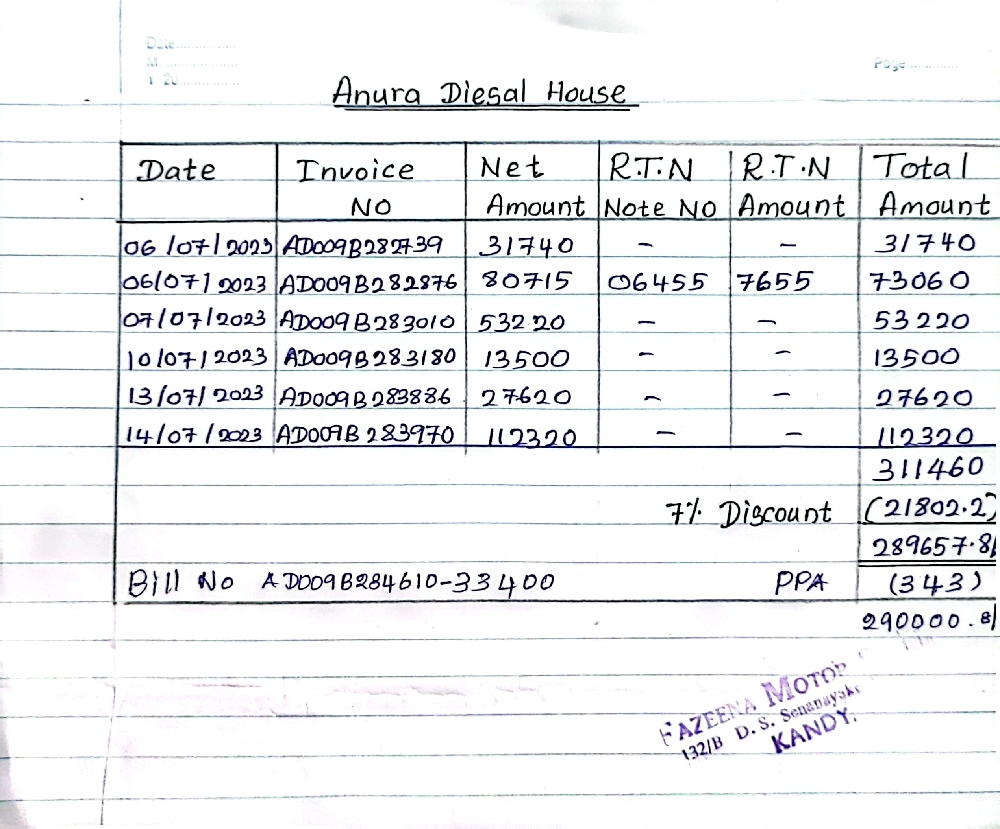 Date
M
T 20
Page
Anura Diesal House
Date Invoice NO Net Amount R.T.N Note No R.T.N Amount Total Amount
06/07/2023 AD009B282739 31740 - - 31740
06/07/2023 AD009B282876 80715 06455 7655 73060
07/07/2023 AD009B283010 53220 - - 53220
10/07/2023 AD009B283180 13500 - - 13500
13/07/2023 AD009B283886 27620 - - 27620
14/07/2023 AD009B283970 112320 - - 112320
311460
7% Discount (21802.2)
289657.8/
Bill No AD009B284610-33400 PPA (343)
290000.8/
FAZEENA MOTOR
132/B D.S. Senanayake
KANDY.